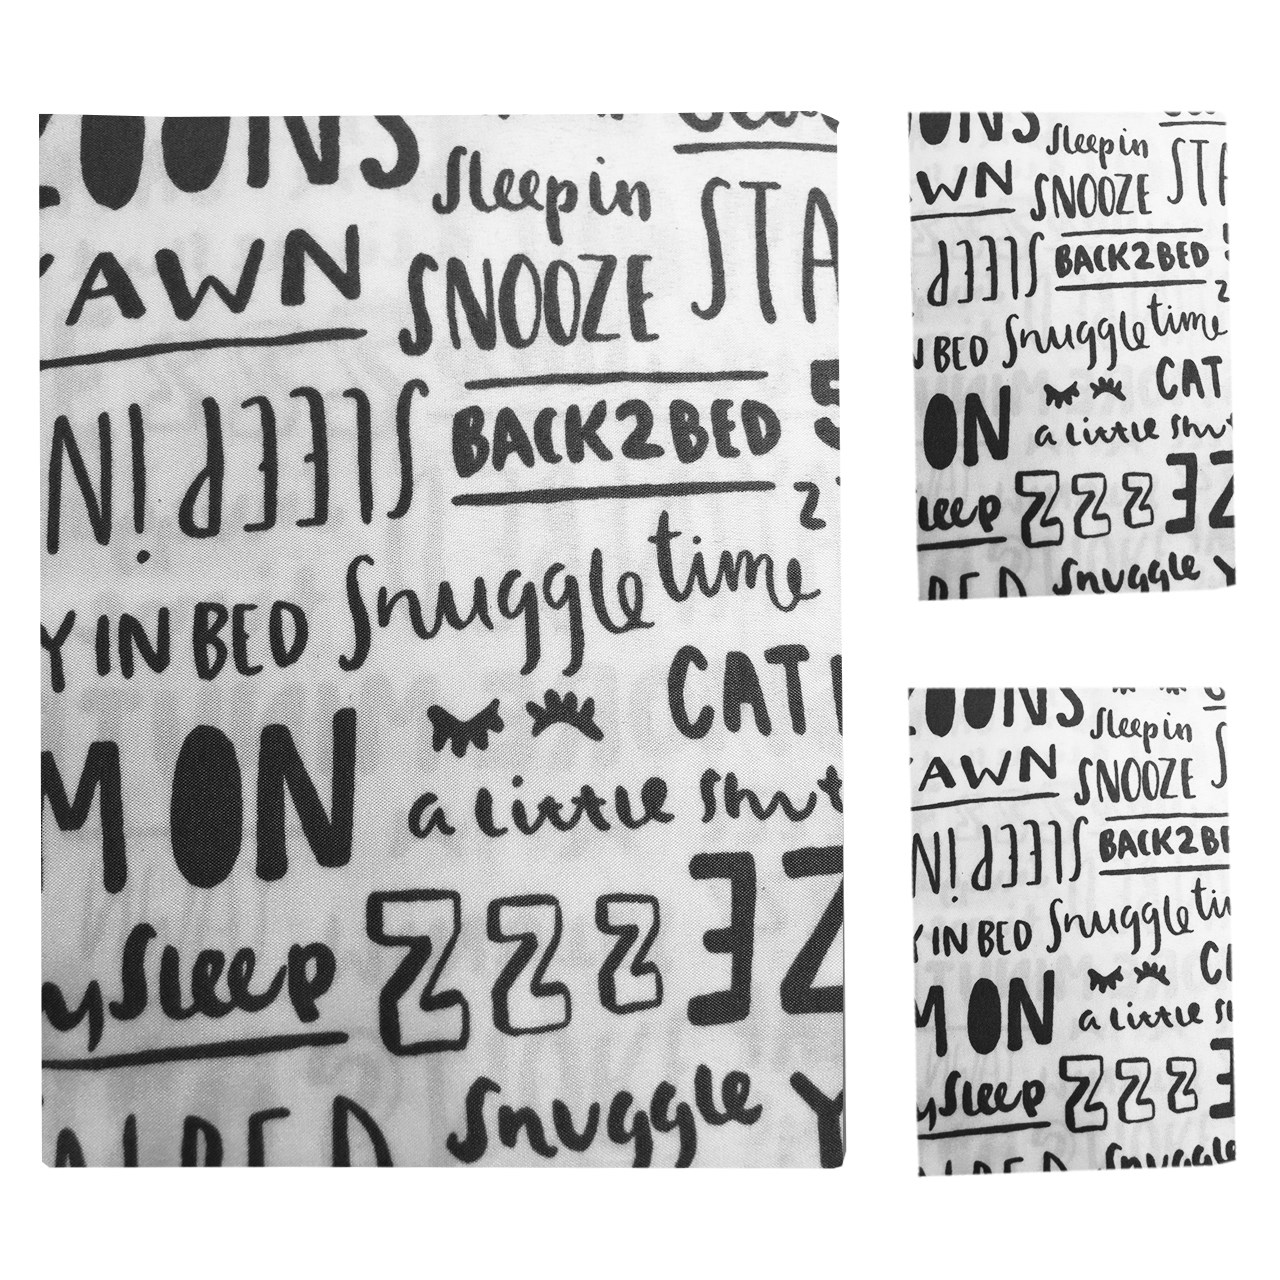 OONS
Sleep in
STA
AWN
SNOOZE
SLEEP IN
BACK2BED
Y IN BED Snuggle time
CAT
M ON
a little shut
y Sleep ZZZ
Snuggle Y
OONS
Sleep in
ST
WN
SNOOZE
SLEEP
BACK2BED
BED Snuggle time
CAT
ON
a little shut
leep ZZZ
Snuggle Y
OONS
Sleep in
AWN
SNOOZE
SLEEP IN
BACK2BE
Y IN BED Snuggle ti
M ON
a little s
y Sleep ZZZ
Snuggle